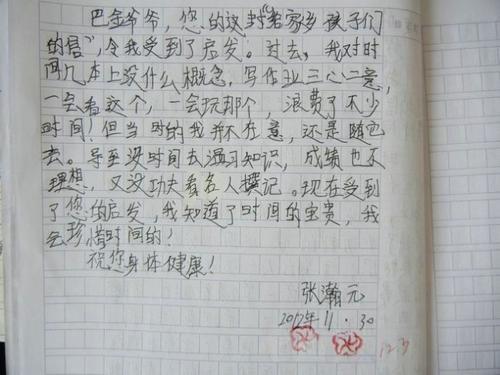 巴金爷爷，您的这封“给家乡孩子们
的信”，令我受到了启发。过去，我对时
间几本上没什么概念，写作业三心二意，
一会看这个，一会玩那个，浪费了不少
时间！但当时的我并不在意，还是随它
去。导至没时间去温习知识，成绩也不
理想，又没功夫看名人撰记。现在受到
了您的启发，我知道了时间的宝贵，我
会珍惜时间的！
祝您身体健康！
张瀚元
2012年11.30
12.3